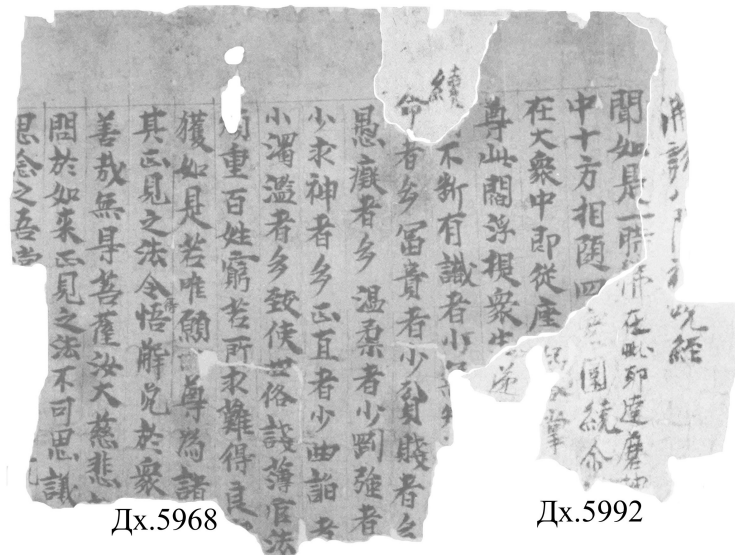 呪經
聞如是一時佛在毗耶達磨
中十方相隨四衆圍繞尒
在大衆中即從座
尊此閻浮提衆生遞
續不斷有識者少
命者多冨貴者少貧賤者多
愚癡者多溫柔者少剛強者
少求神者多正直者少曲諂者
小濁濫者多致使世俗淺薄官法
煩重百姓窮苦所求難得良
獲如是苦唯願尊為諸
其正見之法令得悟解免於衆
善哉無㝵菩薩汝大慈悲
問於如來正見之法不可思議
思念之吾當
Дх.5968
Дх.5992